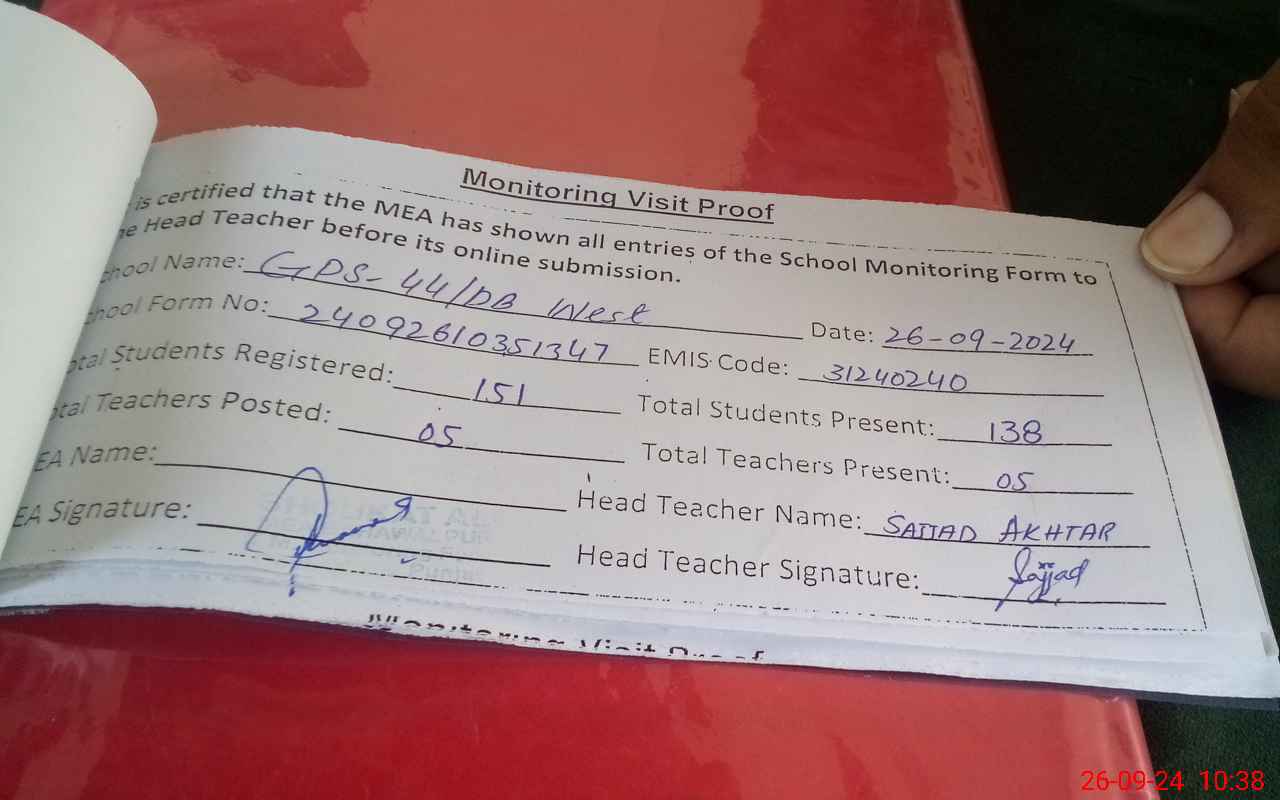 Monitoring Visit Proof
is certified that the MEA has shown all entries of the School Monitoring Form to
he Head Teacher before its online submission.
chool Name: GPS-44/DB West Date: 26-09-2024
chool Form No: 24092610351347 EMIS Code: 31240240
otal Students Registered: 151 Total Students Present: 138
otal Teachers Posted: 05 Total Teachers Present: 05
EA Name: Head Teacher Name: SAJJAD AKHTAR
EA Signature: Head Teacher Signature: Sajjad
Monitoring Visit Proof
26-09-24 10:38